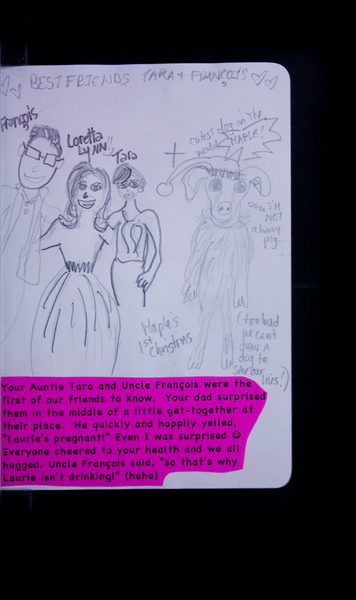 BEST FRIENDS TARA + FRANÇOIS
François
Loretta
LyNN
Tara
cutest dog in the
world MAPLE!
I'M
NOT
a
pig...
Maple's
1st Christmas
(too bad
we can't
draw a
dog to
save our
lives!)
Your Auntie Tara and Uncle François were the
first of our friends to know. Your dad surprised
them in the middle of a little get-together at
their place. He quickly and happily yelled,
"Laurie's pregnant!" Even I was surprised ☺
Everyone cheered to your health and we all
hugged. Uncle François said, "so that's why
Laurie isn't drinking!" (haha)